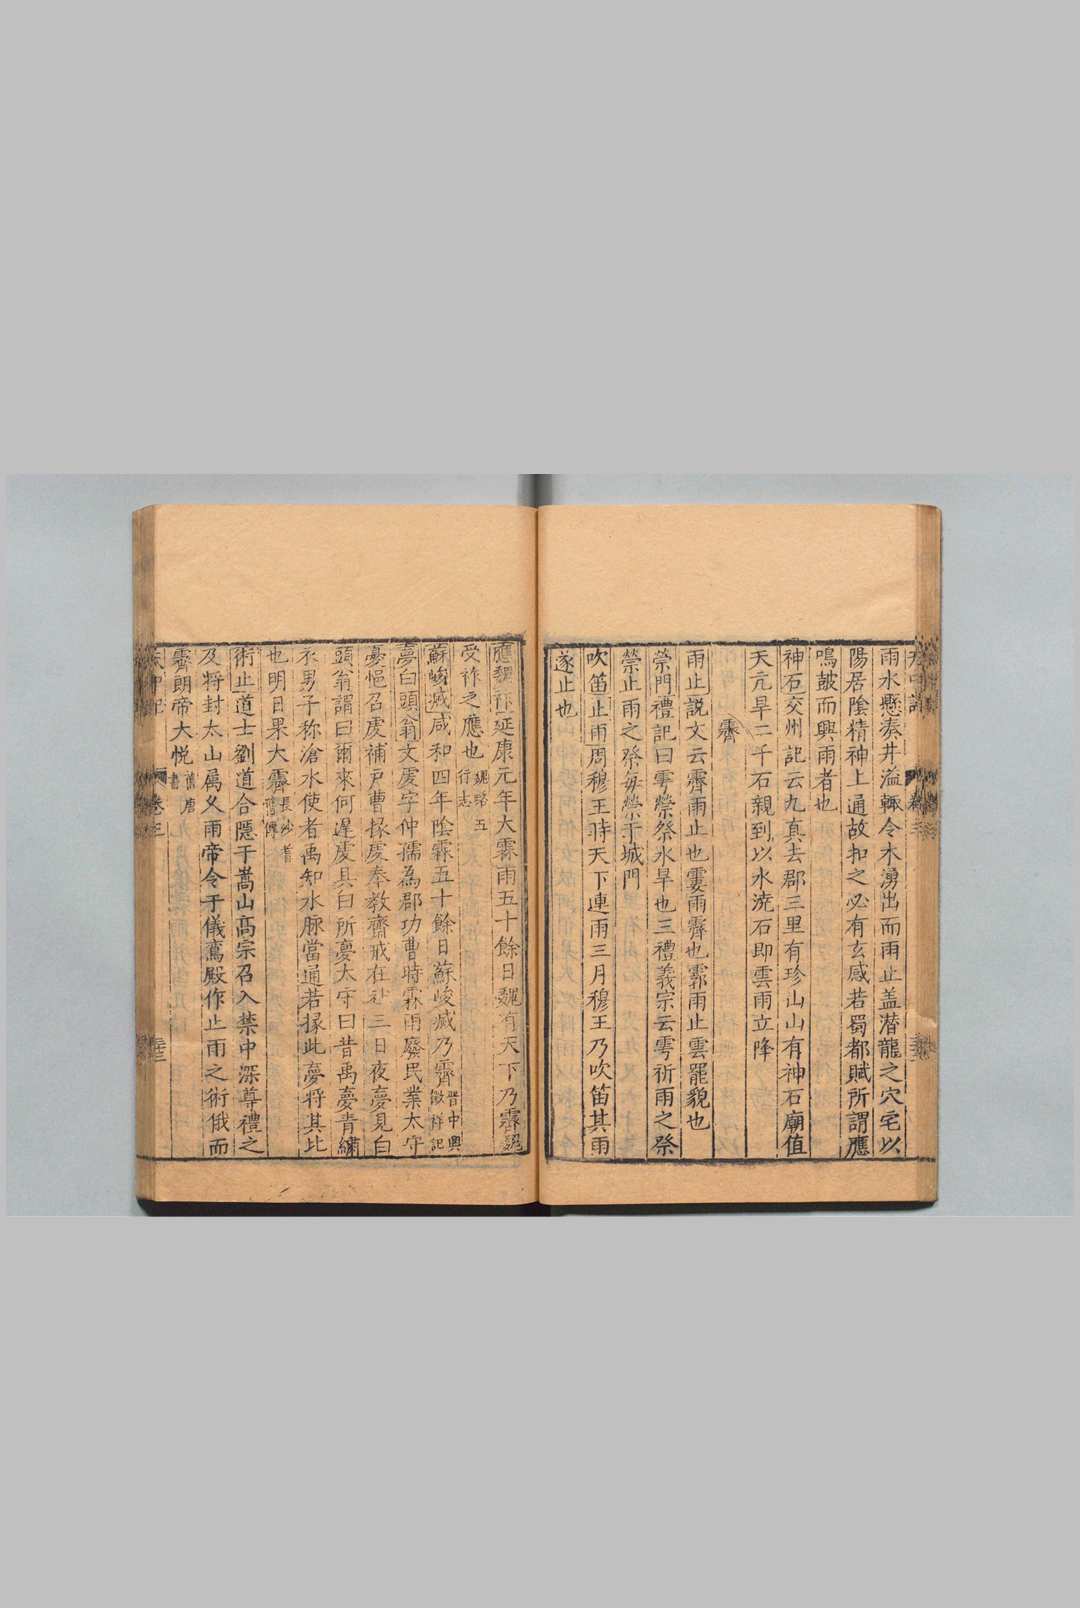 雨水懸湊井溢輙令木湧出而雨止盖潜龍之穴宅以
陽居陰精神上通故扣之必有玄感若蜀都賦所謂應
鳴皷而興雨者也
神石交州記云九真去郡三里有珍山山有神石廟值
天亢旱二千石親到以水澆石即雲雨立降
霽
雨止説文云霽雨止也霋雨霽也霩雨止雲罷貌也
禜門禮記曰雩禜祭水旱也三禮義宗云雩祈雨之祭
禜止雨之祭每禜于城門
吹笛止雨周穆王時天下連雨三月穆王乃吹笛其雨
遂止也
應魏祚延康元年大霖雨五十餘日魏有天下乃霽魏
受祚之應也 魏略五行志
蘇峻滅咸和四年陰霖五十餘日蘇峻滅乃霽 晋中興徵祥記
夢白頭翁文虔字仲孺為郡功曹時霖雨廢民業太守
憂悒召虔補戸曹掾虔奉教齋戒在社三日夜夢見白
頭翁謂曰爾來何遲虔具曰所夢太守曰昔禹夢青繡
衣男子称滄水使者禹知水脉當通若掾此夢将其比
也明日果大霽 長沙耆舊傳
術止道士劉道合隠于嵩山髙宗召入禁中深尊禮之
及将封太山属久雨帝令于儀鸞殿作止雨之術俄而
霽朗帝大悦 舊唐書
卷三